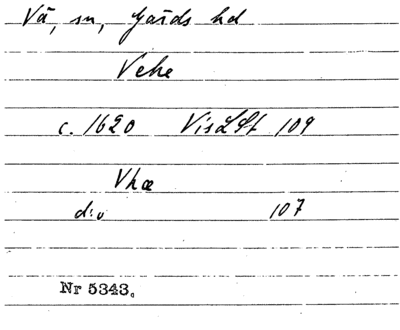 Vä, sn, Gärds hd
Vehe
c. 1620 VisLSt 109
Vhæ
d:o 107
Nr 5343.